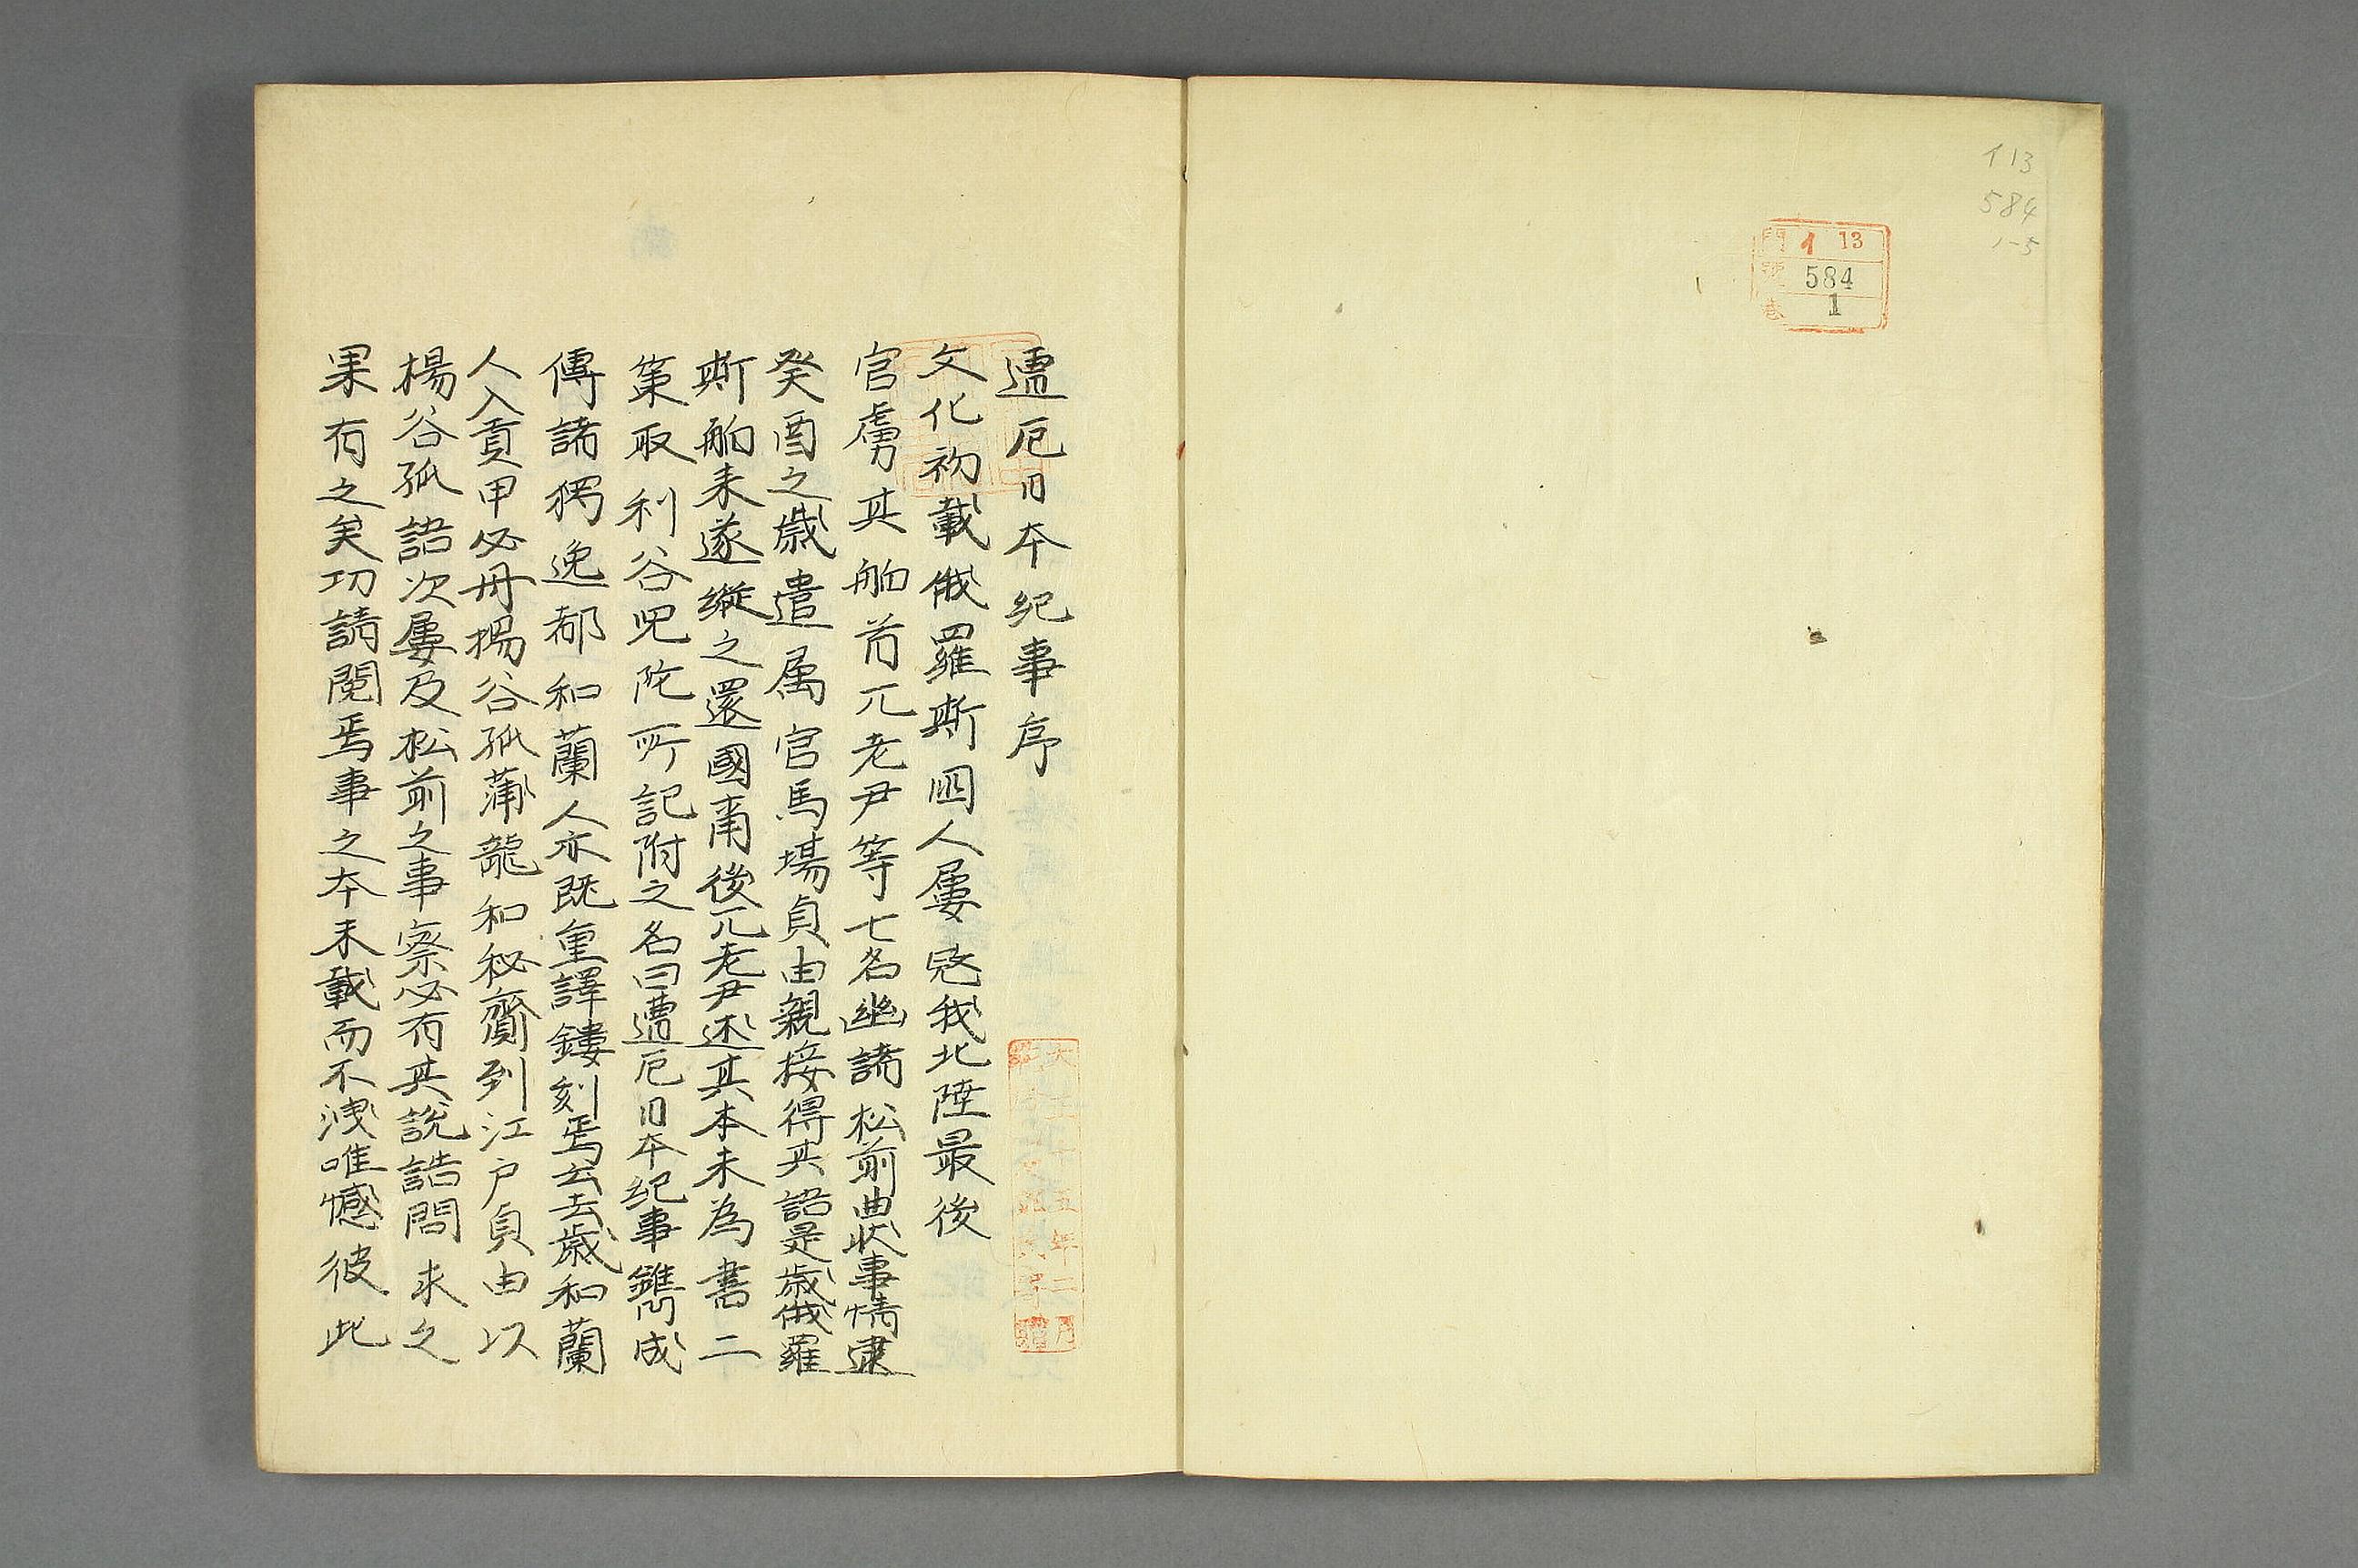 イ13
584
1-5
門 イ 13
號 584
巻 1
遭厄日本紀事序
文化初載俄羅斯囚人屢寇我北陲最後
官虜其舶首兀老尹等七名幽諸松前曲状事情逮
癸酉之歳遣属官馬場貞由親接得其語是歳俄羅
斯舶来遂縦之還國甫後兀老尹述其本末為書二
策取利谷児陀所記附之名曰遭厄日本紀事鐫成
傳諸独逸都和蘭人亦既重譯鏤刻焉云去歳和蘭
人入貢甲必丹揚谷孤蒲龍和秘齎到江戸貞由以
楊谷孤語次屢及松前之事察必有其説詰問求之
果有之矣切請閲焉事之本末載而不洩唯憾彼此
大正十五年二月